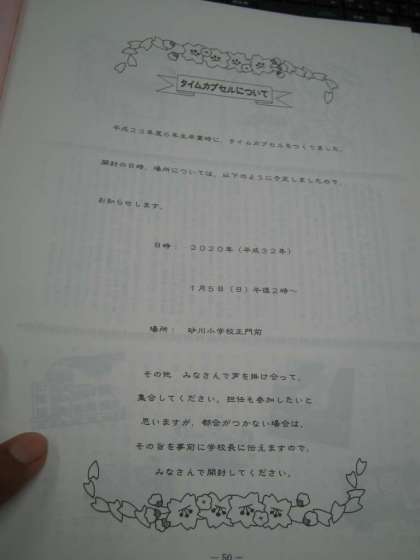 タイムカプセルについて
平成23年度6年生卒業時に、タイムカプセルをつくりました。
開封の日時、場所については、以下のように予定しましたので、
お知らせします。
日時： 2020年（平成32年）
1月5日（日）午後2時～
場所： 砂川小学校正門前
その他 みなさんで声を掛け合って、
集合してください。担任も参加したいと
思いますが、都合がつかない場合は、
その旨を事前に学校長に伝えますので、
みなさんで開封してください。
－50－